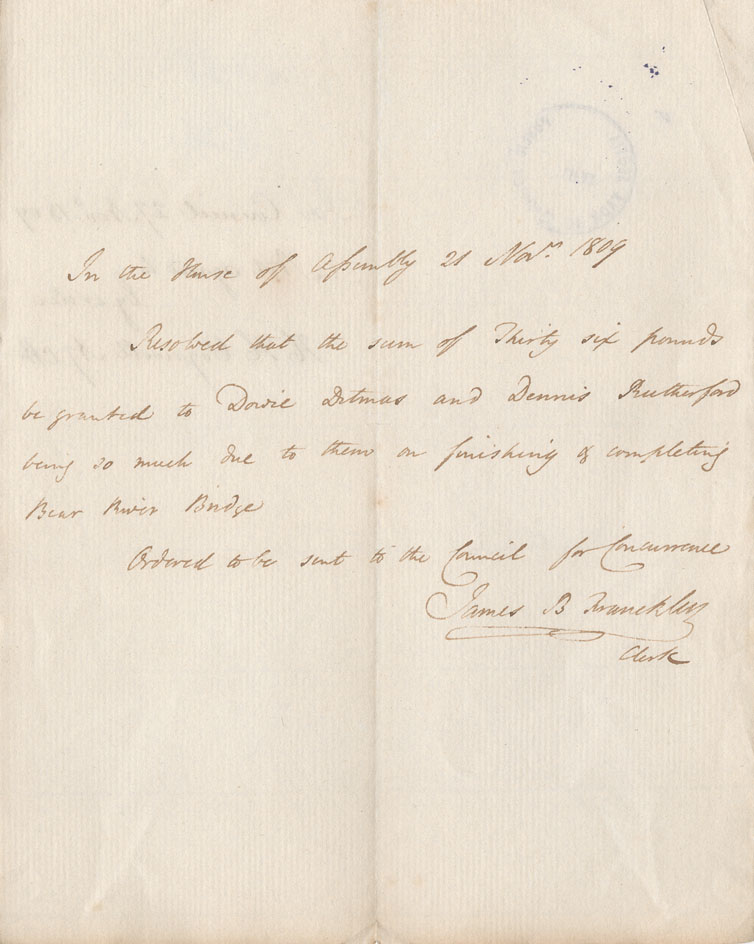 In the House of Assembly 21 Novr. 1809
Resolved that the sum of Thirty six pounds
be granted to Dowie Ditmas and Dennis Rutherford
being so much due to them on finishing & completing
Bear River Bridge
Ordered to be sent to the Council for Concurrence
James B Francklin
Clerk